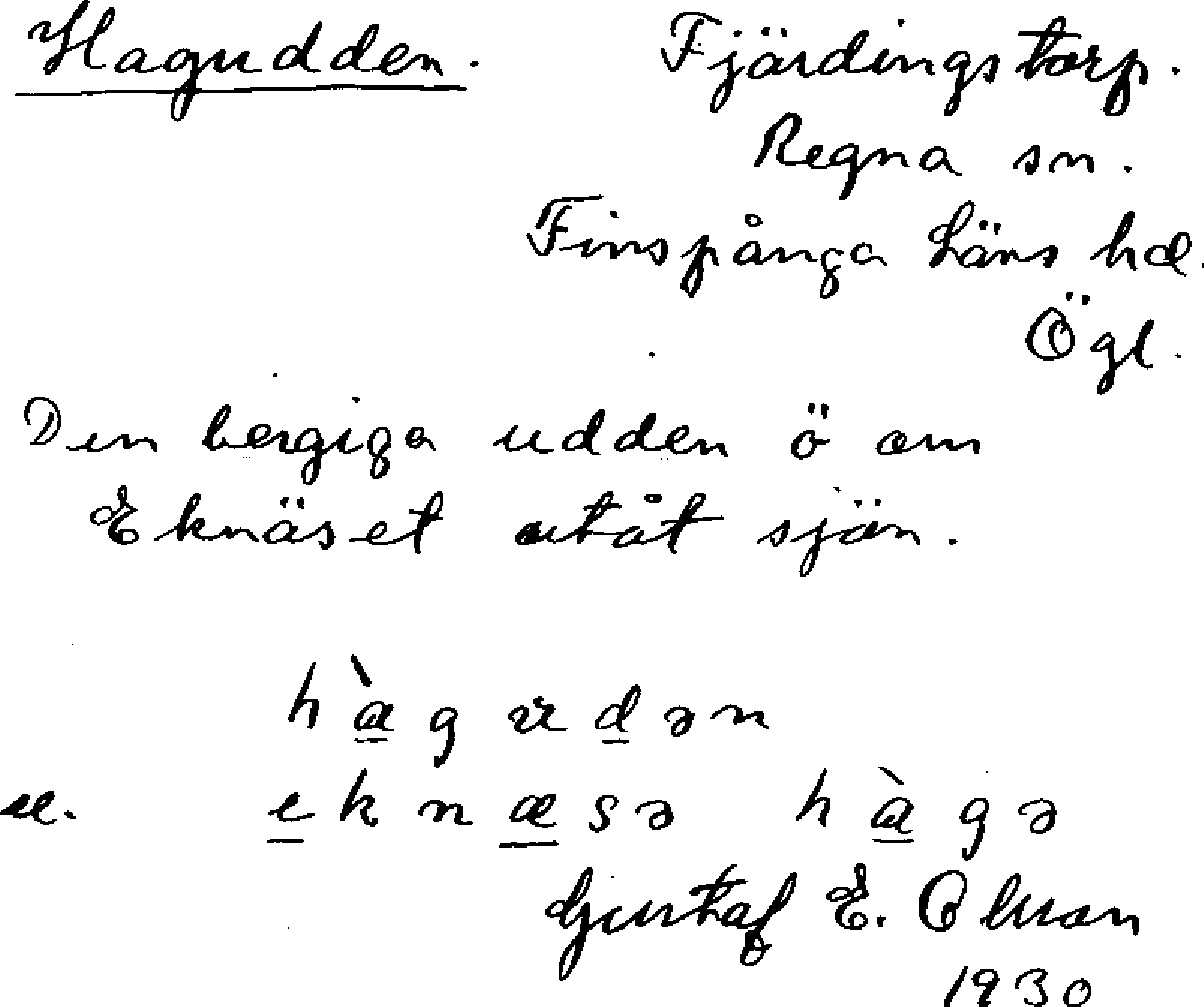 Hagudden. Fjärdingstorp.
Regna sn.
Finspånga Läns hd.
Ögl.
Den bergiga udden ö om
Eknäset utåt sjön.
hàgudən
el. eknæsə hàgə
Gustaf E. Olsson
1930